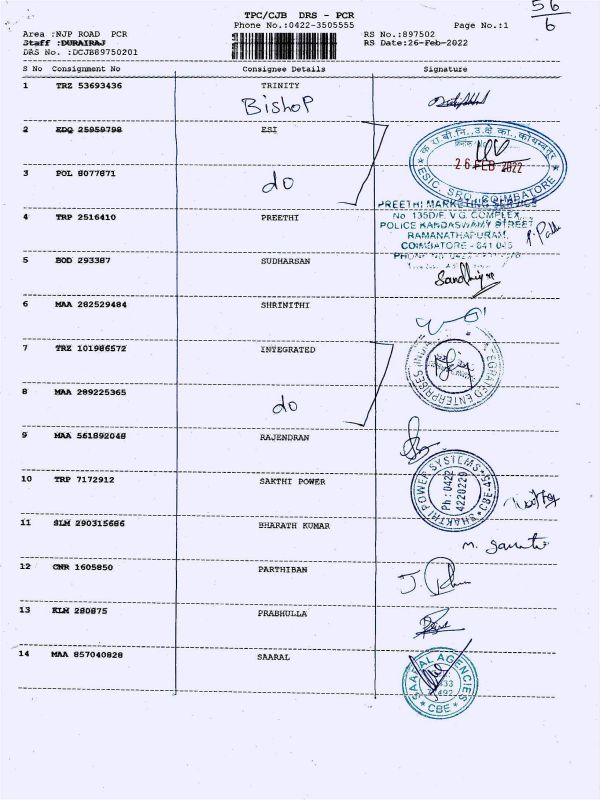 56
6
TPC/CJB DRS - PCR
Phone No.:0422-3505555
Page No.:1
Area :NJP ROAD PCR
Staff :DURAIRAJ
DRS No. :DCJB89750201
RS No.:897502
RS Date:26-Feb-2022
S No Consignment No Consignee Details Signature
1 TRZ 53693436 TRINITY
Bishop
2 EDQ 25959798 ESI
क रा बी नि., उ क्षे का., कोयम्बतूर
26 FEB 2022
ESIC, SRO, COIMBATORE
3 POL 8077871
do
PREETHI MARKETING SERVICE
No 135D/F, V.G. COMPLEX,
POLICE KANDASWAMY STREET
RAMANATHAPURAM,
COIMBATORE - 641 045
4 TRP 2516410 PREETHI
5 BOD 293387 SUDHARSAN
6 MAA 282529484 SHRINITHI
7 TRZ 101986572 INTEGRATED
INTEGRATED ENTERPRISES INDIA
8 MAA 289225365
do
9 MAA 561892048 RAJENDRAN
10 TRP 7172912 SAKTHI POWER
SHAKTHI POWER SYSTEMS
Ph : 0422
4220229
CBE-45
11 SLM 290315686 BHARATH KUMAR
12 CNR 1605850 PARTHIBAN
13 KLM 280875 PRABHULLA
14 MAA 857040828 SAARAL
SAARAL AGENCIES
CBE